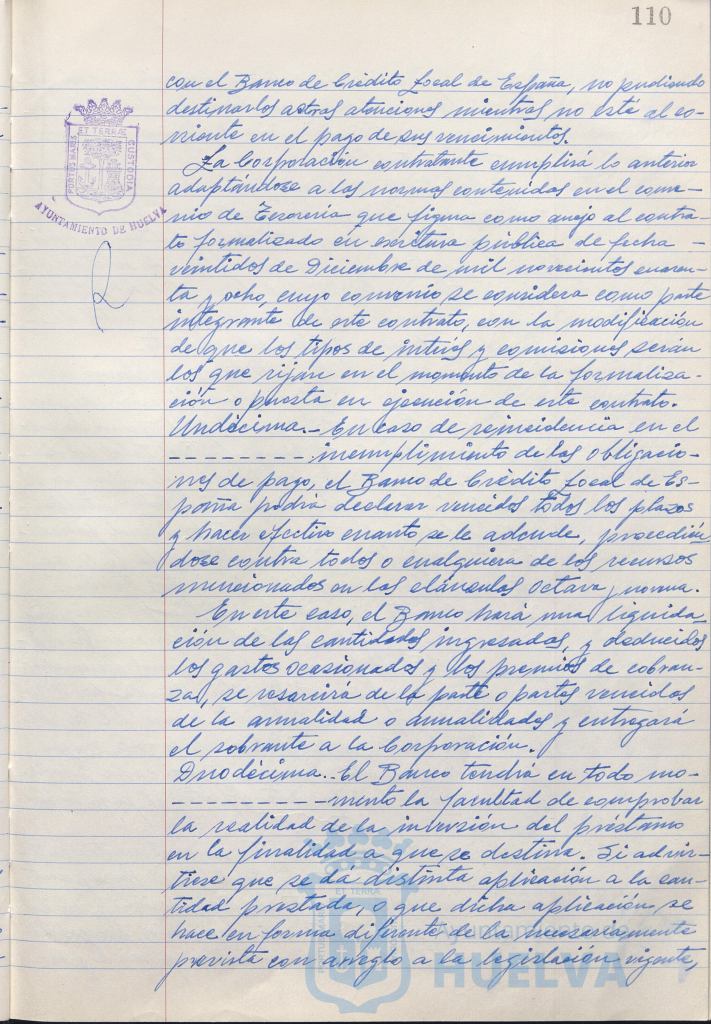 110
con el Banco de Crédito Local de España, no pudiendo
destinarlos a otras atenciones mientras no esté al co-
rriente en el pago de sus vencimientos.
La Corporación contratante cumplirá lo anterior
adaptándose a las normas contenidas en el conve-
nio de Tesorería que figura como anejo al contra-
to formalizado en escritura pública de fecha -
veintidos de Diciembre de mil novecientos cuaren-
ta y ocho, cuyo convenio se considera como parte
integrante de este contrato, con la modificación
de que los tipos de interés y comisiones serán
los que rijan en el momento de la formaliza-
ción o puesta en ejecución de este contrato.
Undécima.- En caso de reincidencia en el
- - - - - - - - - incumplimiento de las obligacio-
nes de pago, el Banco de Crédito Local de Es-
paña podrá declarar vencidos todos los plazos
y hacer efectivo cuanto se le adeude, procedién
dose contra todos o cualquiera de los recursos
mencionados en las cláusulas octava y novena.
En este caso, el Banco hará una liquida-
ción de las cantidades ingresadas, y deducidos
los gastos ocasionados y los premios de cobran-
za, se resarcirá de la parte o partes vencidas
de la anualidad o anualidades y entregará
el sobrante a la Corporación.
Duodécima.- El Banco tendrá en todo mo-
- - - - - - - - - - mento la facultad de comprobar
la realidad de la inversión del préstamo
en la finalidad a que se destina. Si advir-
tiese que se dá distinta aplicación a la can-
tidad prestada, o que dicha aplicación se
hace en forma diferente de la necesariamente
prevista con arreglo a la legislación vigente,
PORTUS MARIS
ET TERRAE
CUSTODIA
AYUNTAMIENTO DE HUELVA
ET TERRA
Ayuntamiento
HUELVA